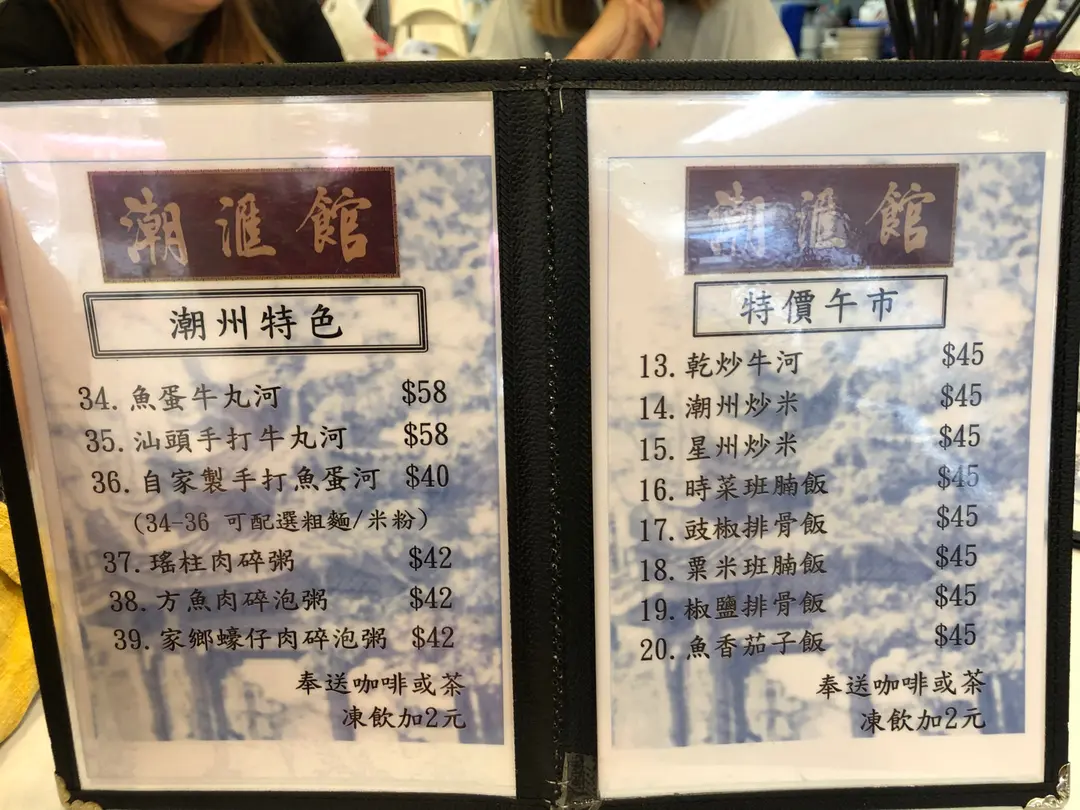 潮滙館
潮州特色
34. 魚蛋牛丸河 $58
35. 汕頭手打牛丸河 $58
36. 自家製手打魚蛋河 $40
(34-36 可配選粗麵/米粉)
37. 瑤柱肉碎粥 $42
38. 方魚肉碎泡粥 $42
39. 家鄉蠔仔肉碎泡粥 $42
奉送咖啡或茶
凍飲加2元
潮滙館
特價午市
13. 乾炒牛河 $45
14. 潮州炒米 $45
15. 星州炒米 $45
16. 時菜班腩飯 $45
17. 豉椒排骨飯 $45
18. 粟米班腩飯 $45
19. 椒鹽排骨飯 $45
20. 魚香茄子飯 $45
奉送咖啡或茶
凍飲加2元